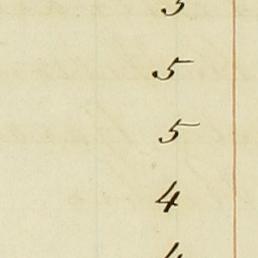 5
5
4